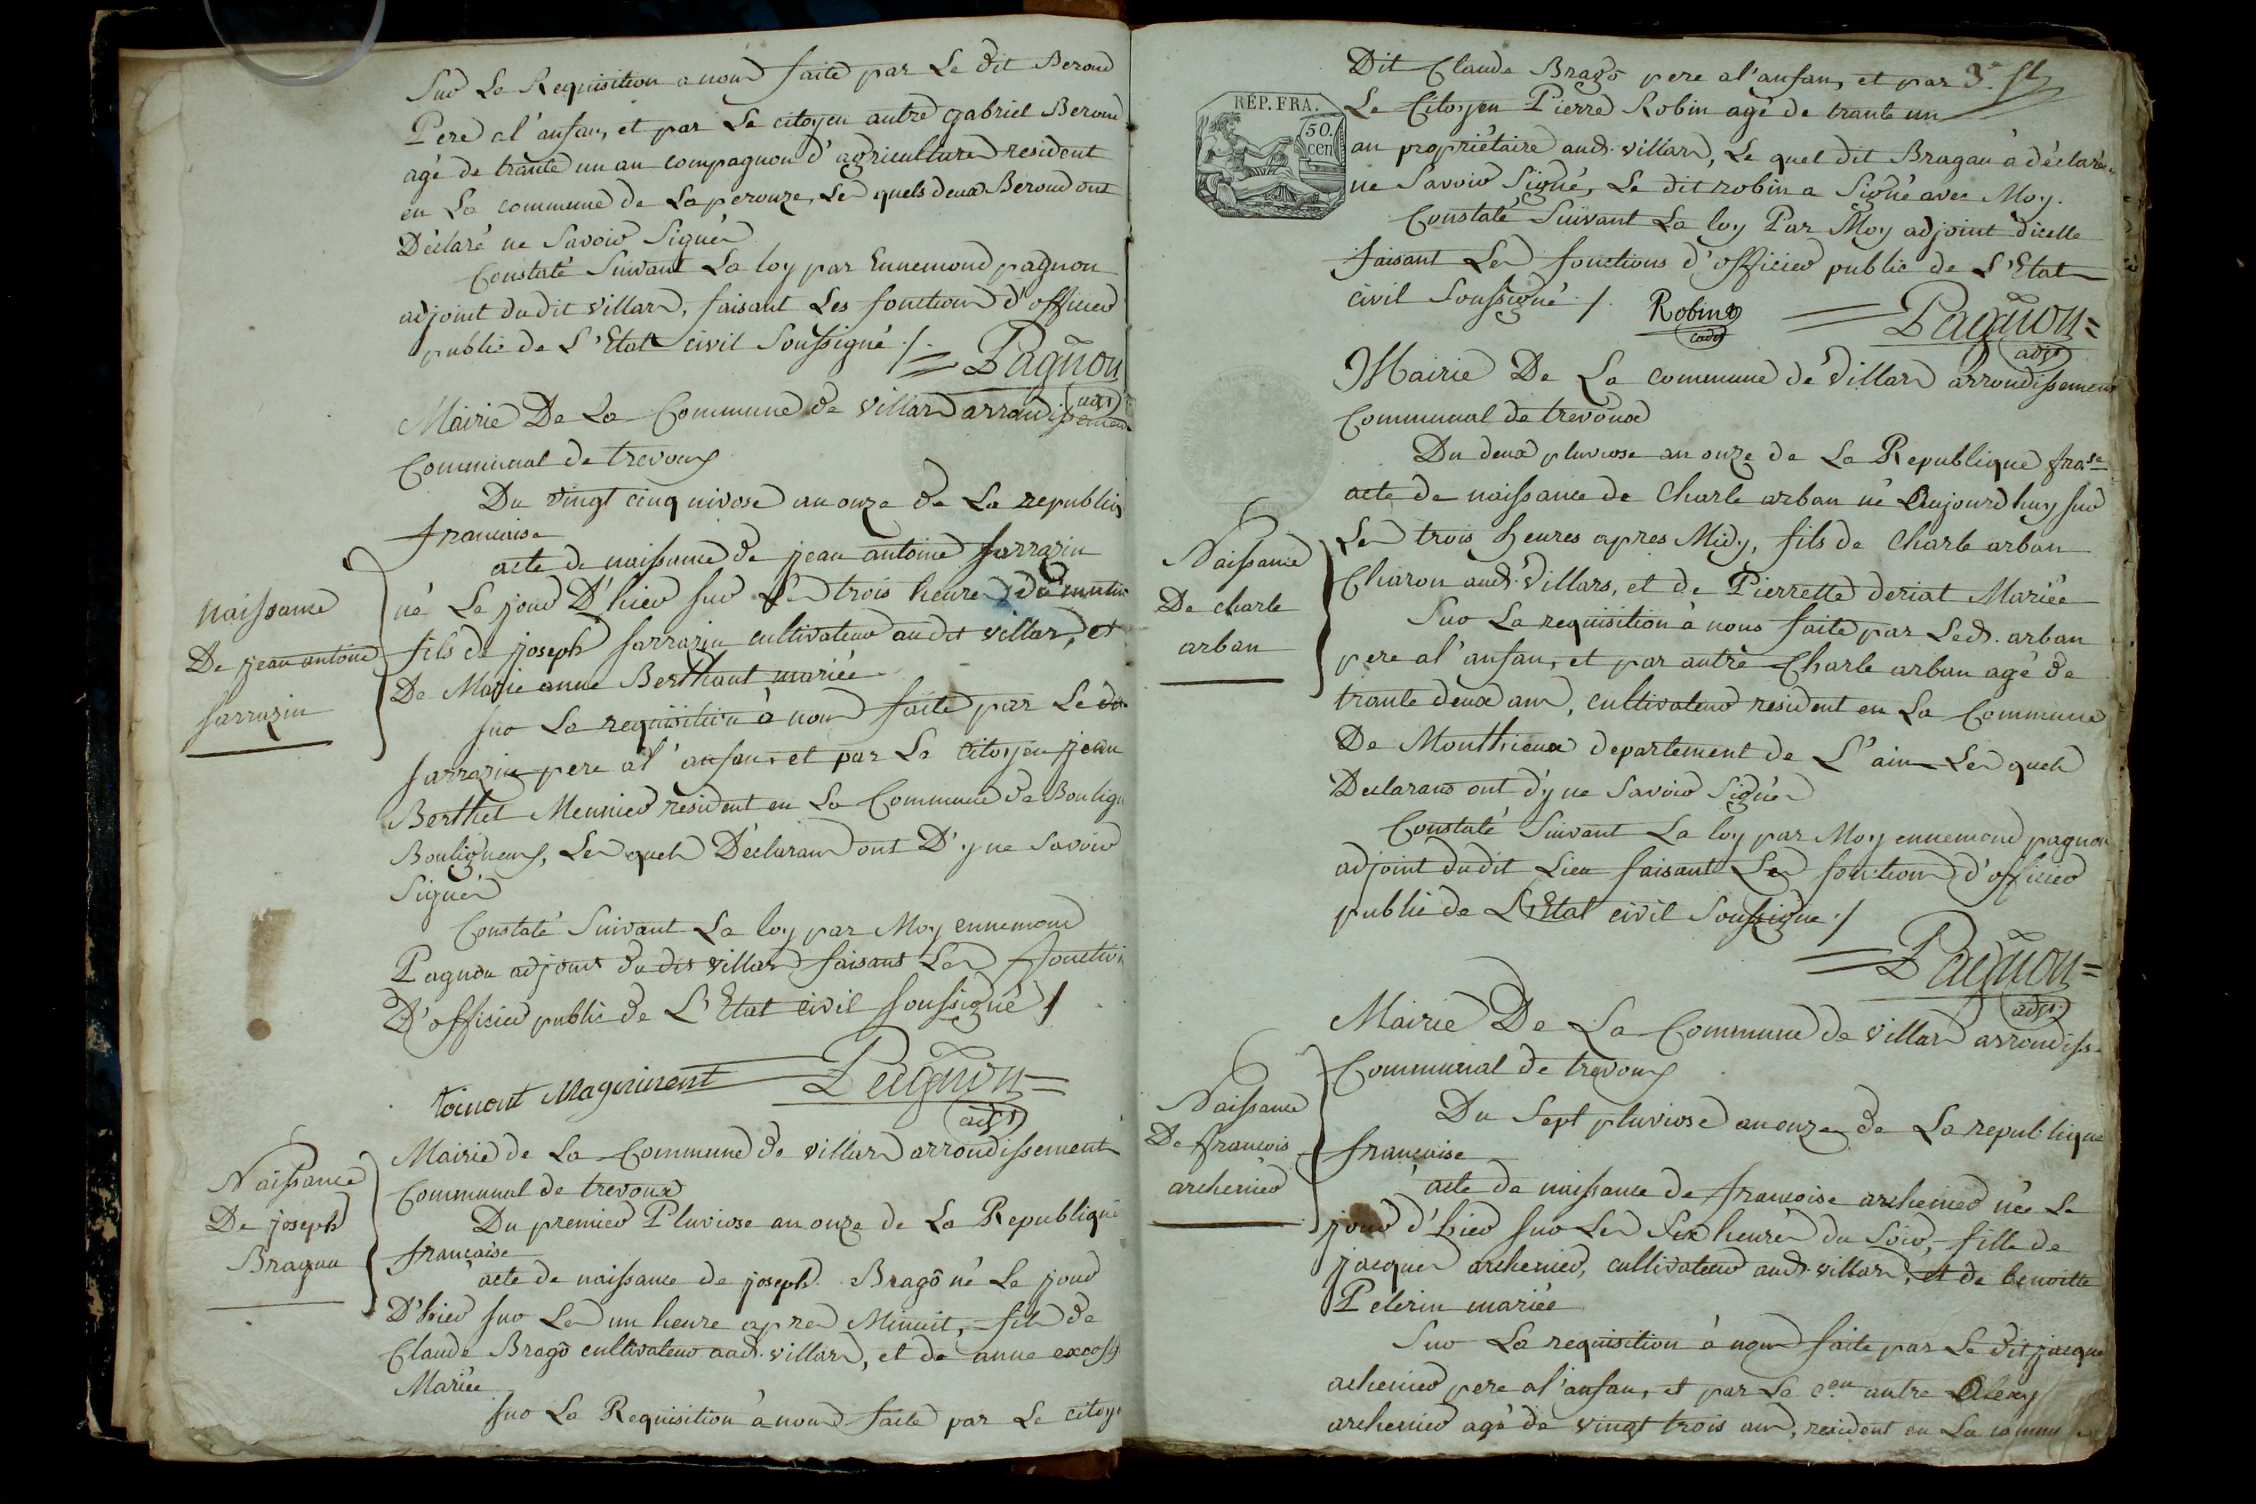 Sur La Requisition a nous faite par Le dit Beroud
Pere a l'anfan, et par Le citoyen autre gabriel Beroud
agé de trante un an compagnon d'agriculture resident
en La commune de Laperouze, Les quels deux Beroud ont
Déclaré ne Savoir Signer
Constaté Suivant La loy par Ennemond pagnon
adjoint dudit villars, faisant Les fonctions d'officier
public de L'Etat civil Soussigné ./.
= Pagnon
adjt
Mairie De La Commune de villars arrondissement
Communal de trevoux
Du vingt cinq nivose an onze de La republiq
francaise
naissance
De jean antoine
sarrazin
acte de naissance de jean antoine sarrazin
né Le jour D'hier sur Les trois heures du matin
fils de joseph sarrazin cultivateur audit villars, et
De Marie anne Berthaut mariée
sur La requisition à nous faite par Le dit
sarrazin pere à l'anfan, et par Le citoyen jean
Berthet Meunier resident en La Commune de Boulign
Bouligneux, Les quels Déclarans ont D'y ne Savoir
Signer
Constaté Suivant La loy par Moy ennemond
Pagnon adjoint du dit villars faisant Les fonction
D'officier public de L'Etat civil soussigné /
Pagnon =
adjt
Naissance
De joseph
Bragau
Mairie de La Commune de villars arrondissement
Communal de trevoux
Du premier Pluviose an onze de La Republique
francaise
acte de naissance de joseph Bragô né Le jour
D'hier sur Les un heure apres Minuit, fils de
Claude Bragô cultivateur aud. villars, et de anne
Mariée
sur La Requisition à nous faite par Le citoy
Dit Claude Bragô pere a l'anfan, et par
RÉP. FRA.
50.
cen
Le Citoyen Pierre Robin agé de trante un
an propriétaire aud. villars, Le quel dit Bragau à déclaré
ne Savoir Signé, Le dit robin a Signé avec Moy.
Constaté Suivant La loy Par Moy adjoint d'icelle
faisant Les fonctions d'officier public de L'Etat
civil Soussigné ./.
Robin
cadet
Pagnon =
adjt
Mairie De La commune de villars arrondissement
Communal de trevoux
Du deux pluviose an onze de La Republique franse
Naissance
De charle
arban
acte de naissance de Charle arban né Aujourdhuy sur
Les trois heures apres Midy, fils de Charle arban
Charon aud. Villars, et de Pierrette deriat Mariée
Sur La requisition à nous faite par Led. arban
pere a l'anfan, et par autre Charle arban agé de
trante deux ans, cultivateur resident en La Commune
De Monthieux departement de L'ain Les quels
Declarans ont d'y ne Savoir Signer
Constaté Suivant La loy par Moy ennemond pagnon
adjoint dudit Lieu faisant Les fonctions d'officier
public de L'Etat civil Soussigne ./
= Pagnon =
adjt
Mairie De La Commune de villars arrondiss
Communal de trevoux
Du Sept pluviose an onze de La republique
francaise
Naissance
De francois
archenier
acte de naissance de francoise archenier née Le
jour d'hier sur Les Six heures du Soir, fille de
jacques archenier, cultivateur aud. villars, et de benoitte
Pelerin mariée
Sur La requisition à nous faite par Le dit jacque
achenier pere a l'anfan, et par Le cen autre Alexy
archenier agé de vingt trois ans, resident en La commu